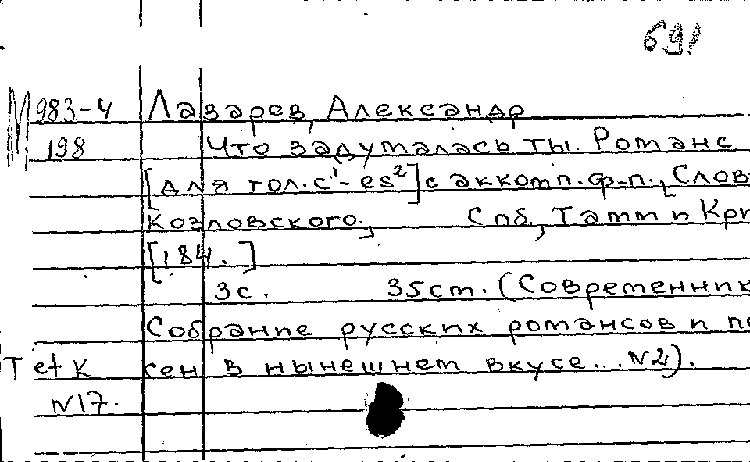 691
М 983-4 Лазарев, Александр
198 Что задумалась ты. Романс
[для гол. c¹-es²] с аккомп. ф-п., [Слов
Козловского.] Спб, Гамм и Кри
[184. ]
3с. 35см. (Современник
Собрание русских романсов и пе
Т et к сен в нынешнем вкусе... №2).
№17.